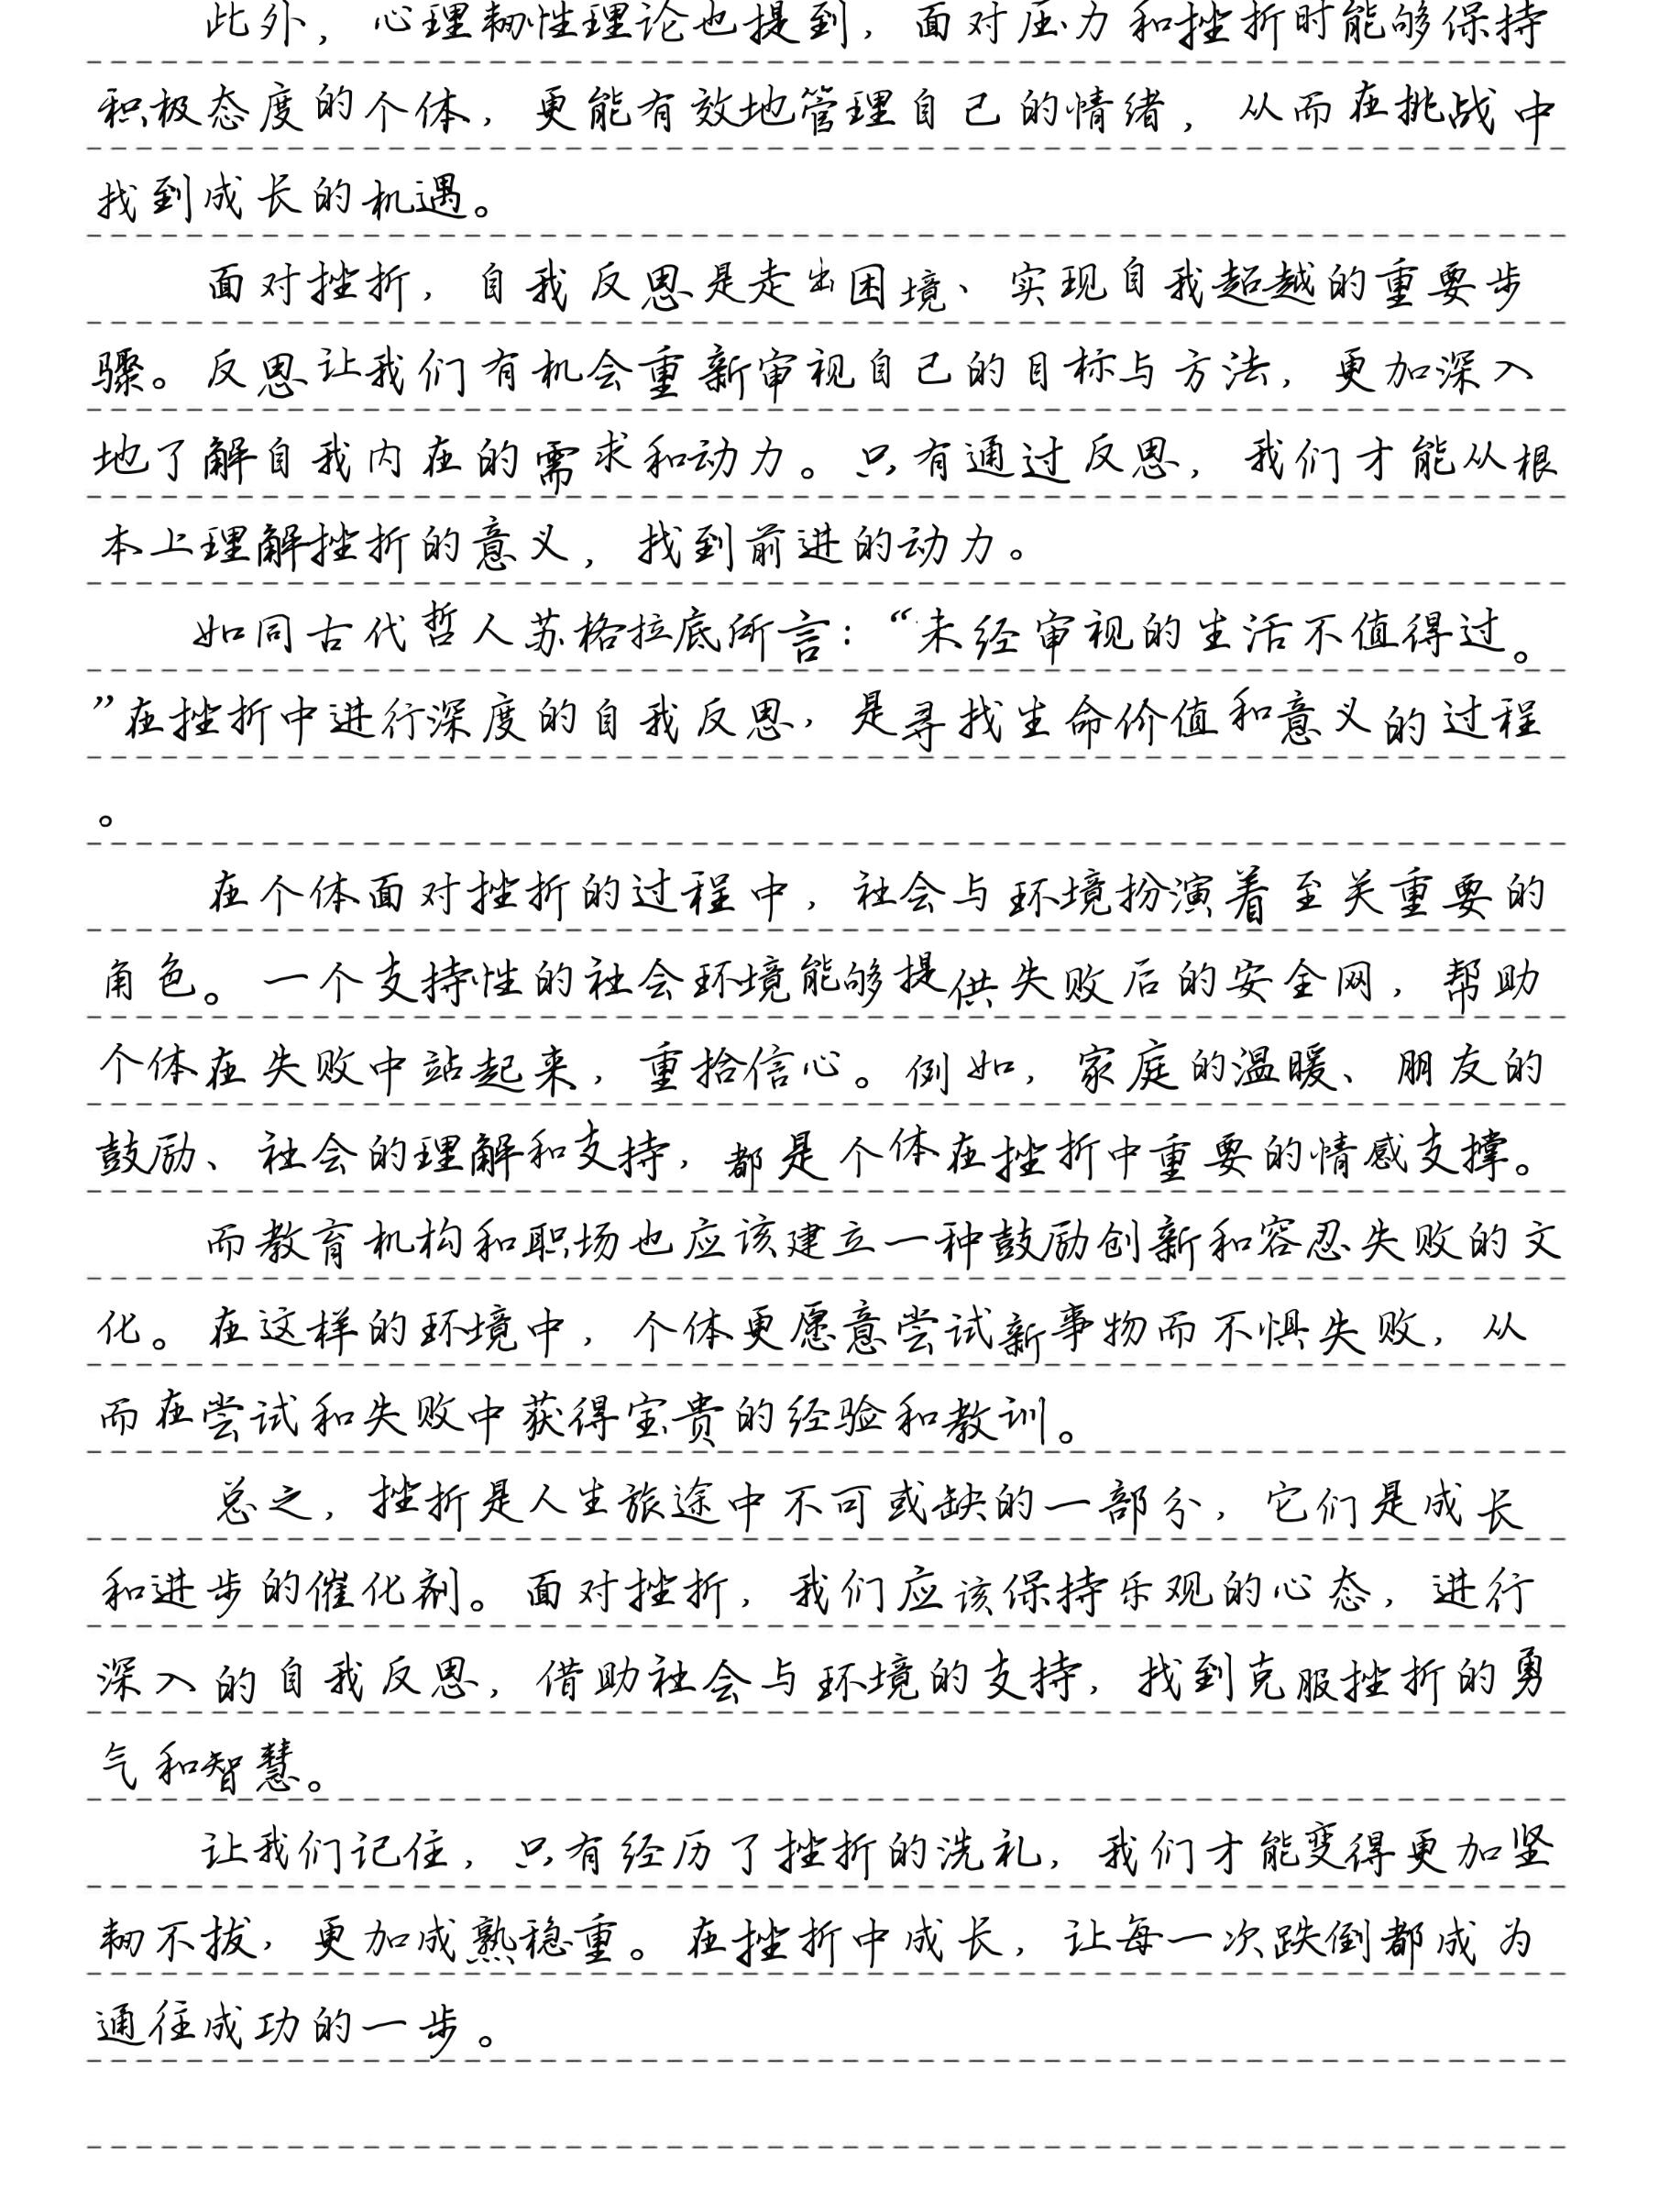 此外，心理韧性理论也提到，面对压力和挫折时能够保持
积极态度的个体，更能有效地管理自己的情绪，从而在挑战中
找到成长的机遇。
面对挫折，自我反思是走出困境、实现自我超越的重要步
骤。反思让我们有机会重新审视自己的目标与方法，更加深入
地了解自我内在的需求和动力。只有通过反思，我们才能从根
本上理解挫折的意义，找到前进的动力。
如同古代哲人苏格拉底所言：“未经审视的生活不值得过。
”在挫折中进行深度的自我反思，是寻找生命价值和意义的过程
。
在个体面对挫折的过程中，社会与环境扮演着至关重要的
角色。一个支持性的社会环境能够提供失败后的安全网，帮助
个体在失败中站起来，重拾信心。例如，家庭的温暖、朋友的
鼓励、社会的理解和支持，都是个体在挫折中重要的情感支撑。
而教育机构和职场也应该建立一种鼓励创新和容忍失败的文
化。在这样的环境中，个体更愿意尝试新事物而不惧失败，从
而在尝试和失败中获得宝贵的经验和教训。
总之，挫折是人生旅途中不可或缺的一部分，它们是成长
和进步的催化剂。面对挫折，我们应该保持乐观的心态，进行
深入的自我反思，借助社会与环境的支持，找到克服挫折的勇
气和智慧。
让我们记住，只有经历了挫折的洗礼，我们才能变得更加坚
韧不拔，更加成熟稳重。在挫折中成长，让每一次跌倒都成为
通往成功的一步。